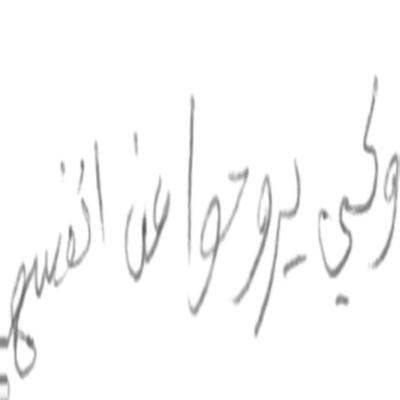 وكي يروحوا عن انفسهم